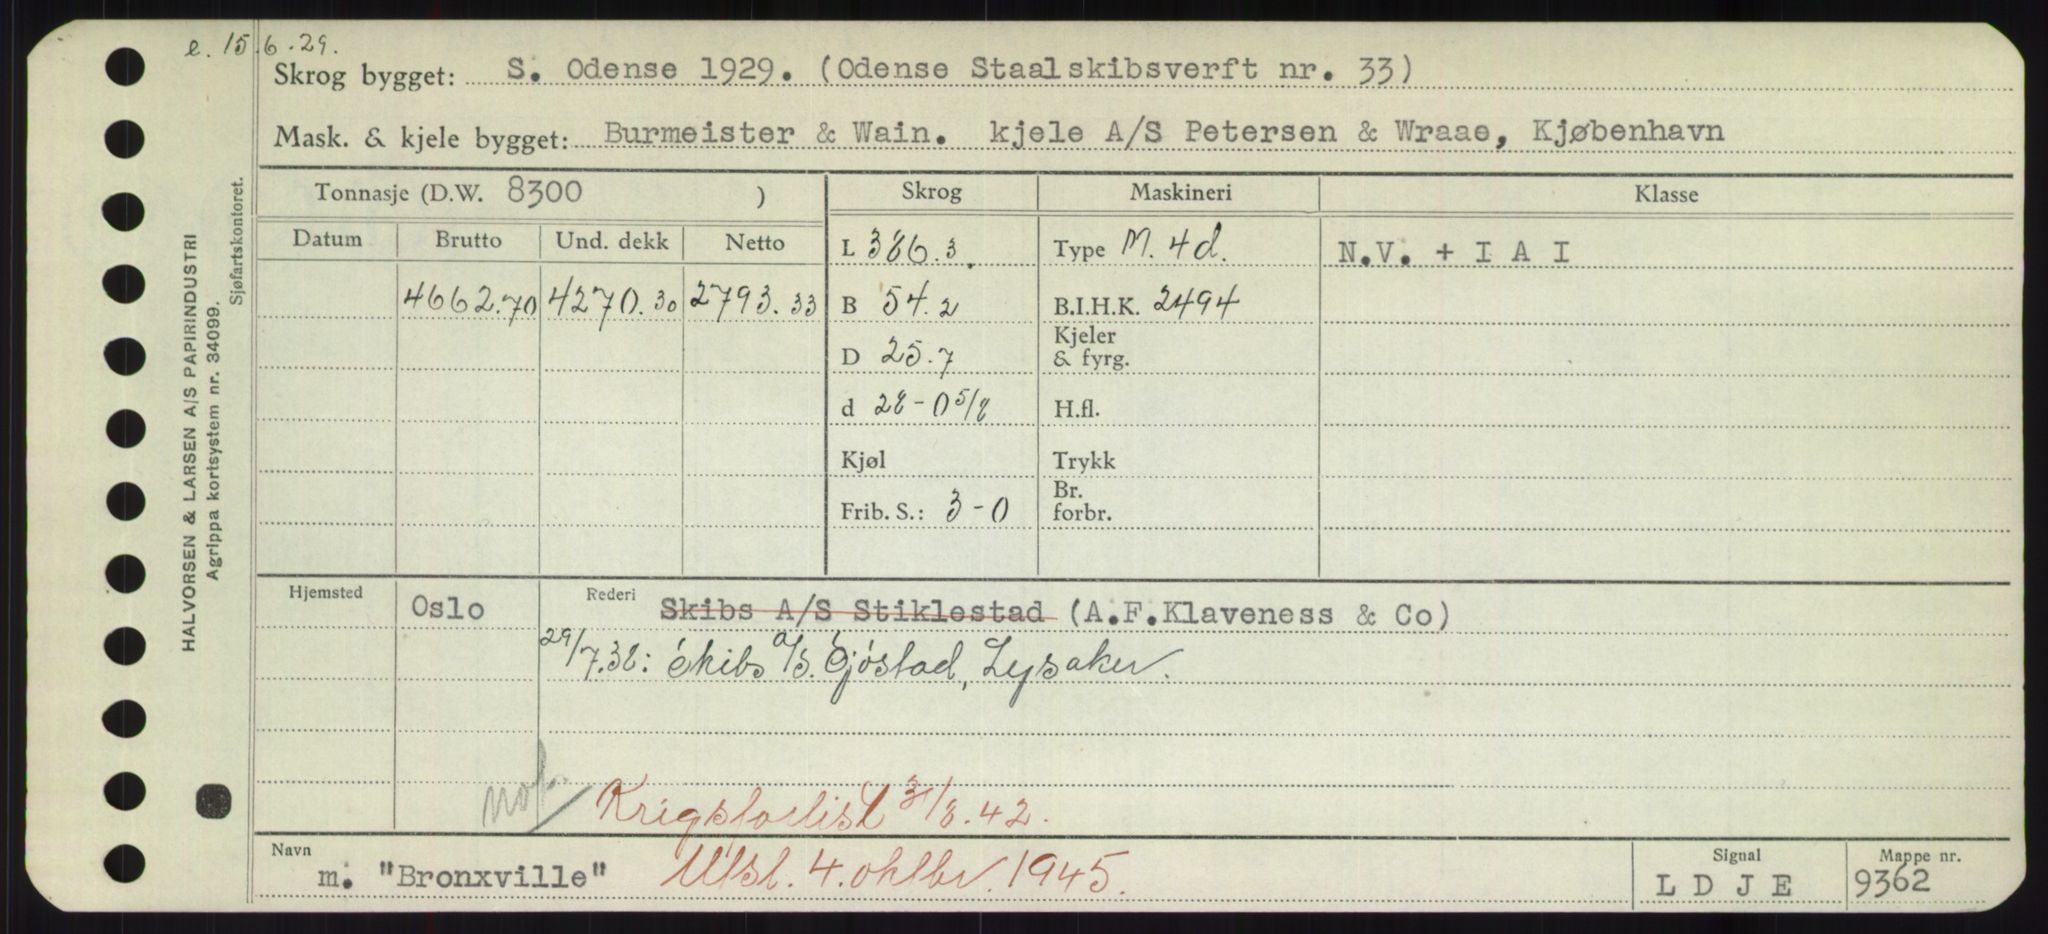 e. 15.6.29.
Skrog bygget: S. Odense 1929. (Odense Staalskibsverft nr. 33)
Mask. & kjele bygget: Burmeister & Wain. kjele A/S Petersen & Wraae, Kjøbenhavn
Tonnasje (D.W. 8300 ) Skrog Maskineri Klasse
Datum Brutto Und. dekk Netto L 386.3. Type M. 4d. N.V. + I A I
4662.70 4270.30 2793.33 B 54.2 B.I.H.K. 2494
D 25.7 Kjeler
& fyrg.
d 28-0 5/8 H.fl.
Kjøl Trykk
Frib. S.: 3-0 Br.
forbr.
Hjemsted Oslo Rederi Skibs A/S Stiklestad (A.F.Klaveness & Co)
29/7.38: Skibs a/s. Gjøstad, Lysaker.
Krigsforlist 31/8.42.
Navn m. "Bronxville" Utsl. 4. oktbr. 1945. Signal L D J E Mappe nr. 9362
HALVORSEN & LARSEN A/S PAPIRINDUSTRI
Agrippa kortsystem nr. 34099.
Sjøfartskontoret.